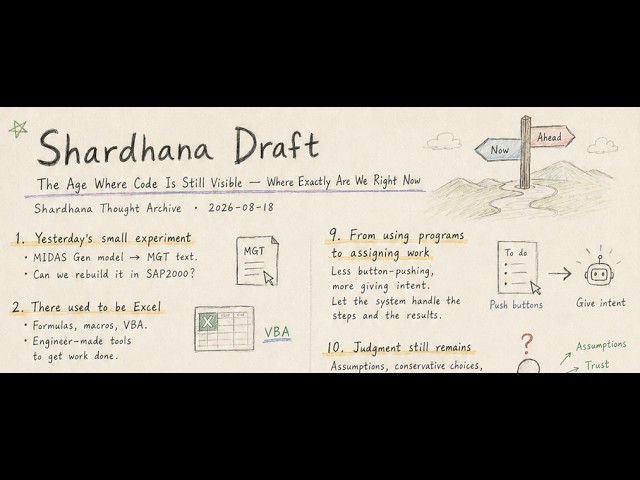 Shardhana Draft
The Age Where Code Is Still Visible — Where Exactly Are We Right Now
Shardhana Thought Archive • 2026-08-18
Now
Ahead
1. Yesterday's small experiment
• MIDAS Gen model → MGT text.
• Can we rebuild it in SAP2000?
MGT
2. There used to be Excel
• Formulas, macros, VBA.
• Engineer-made tools
to get work done.
X
VBA
9. From using programs
to assigning work
Less button-pushing,
more giving intent.
Let the system handle the
steps and the results.
To do
Push buttons
Give intent
10. Judgment still remains
Assumptions, conservative choices,
?
Assumptions
Trust